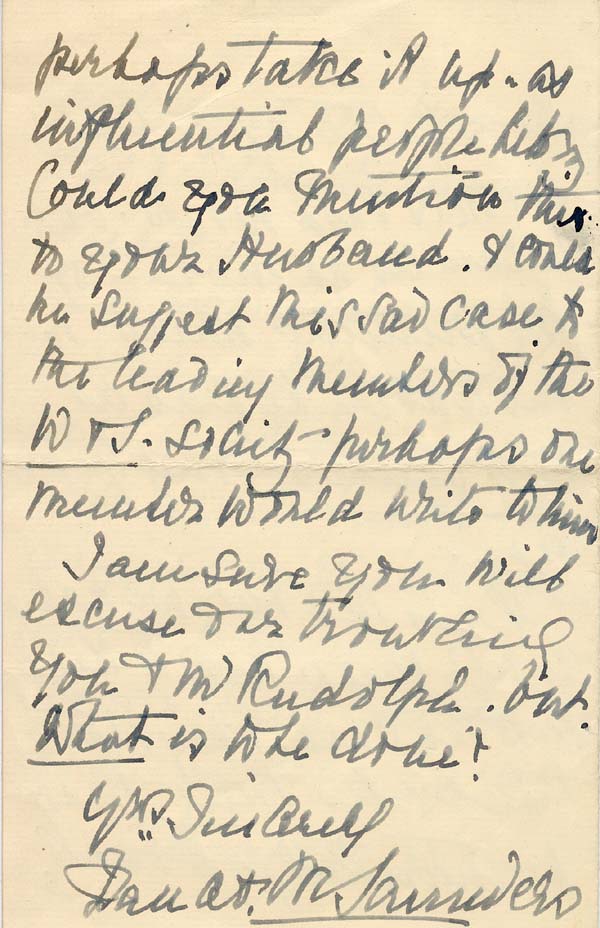 perhaps take it up - as
influential people
Could you mention this
to your Husband. & could
he suggest this sad case to
the leading members of the
Society perhaps one
member would write to him
I am sure you will
excuse our troubling
you & Mr Rudolph. but.
What is to be done?
Yrs. Sincerely
M Saunders